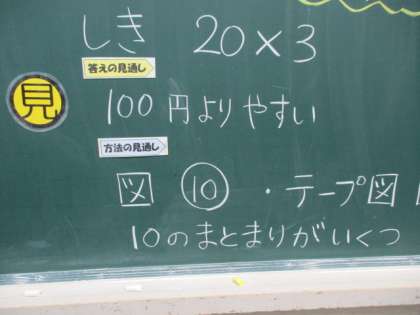 しき 20×3
答えの見通し
見
100円よりやすい
方法の見通し
図 ⑩ ・テープ図
10のまとまりがいくつ